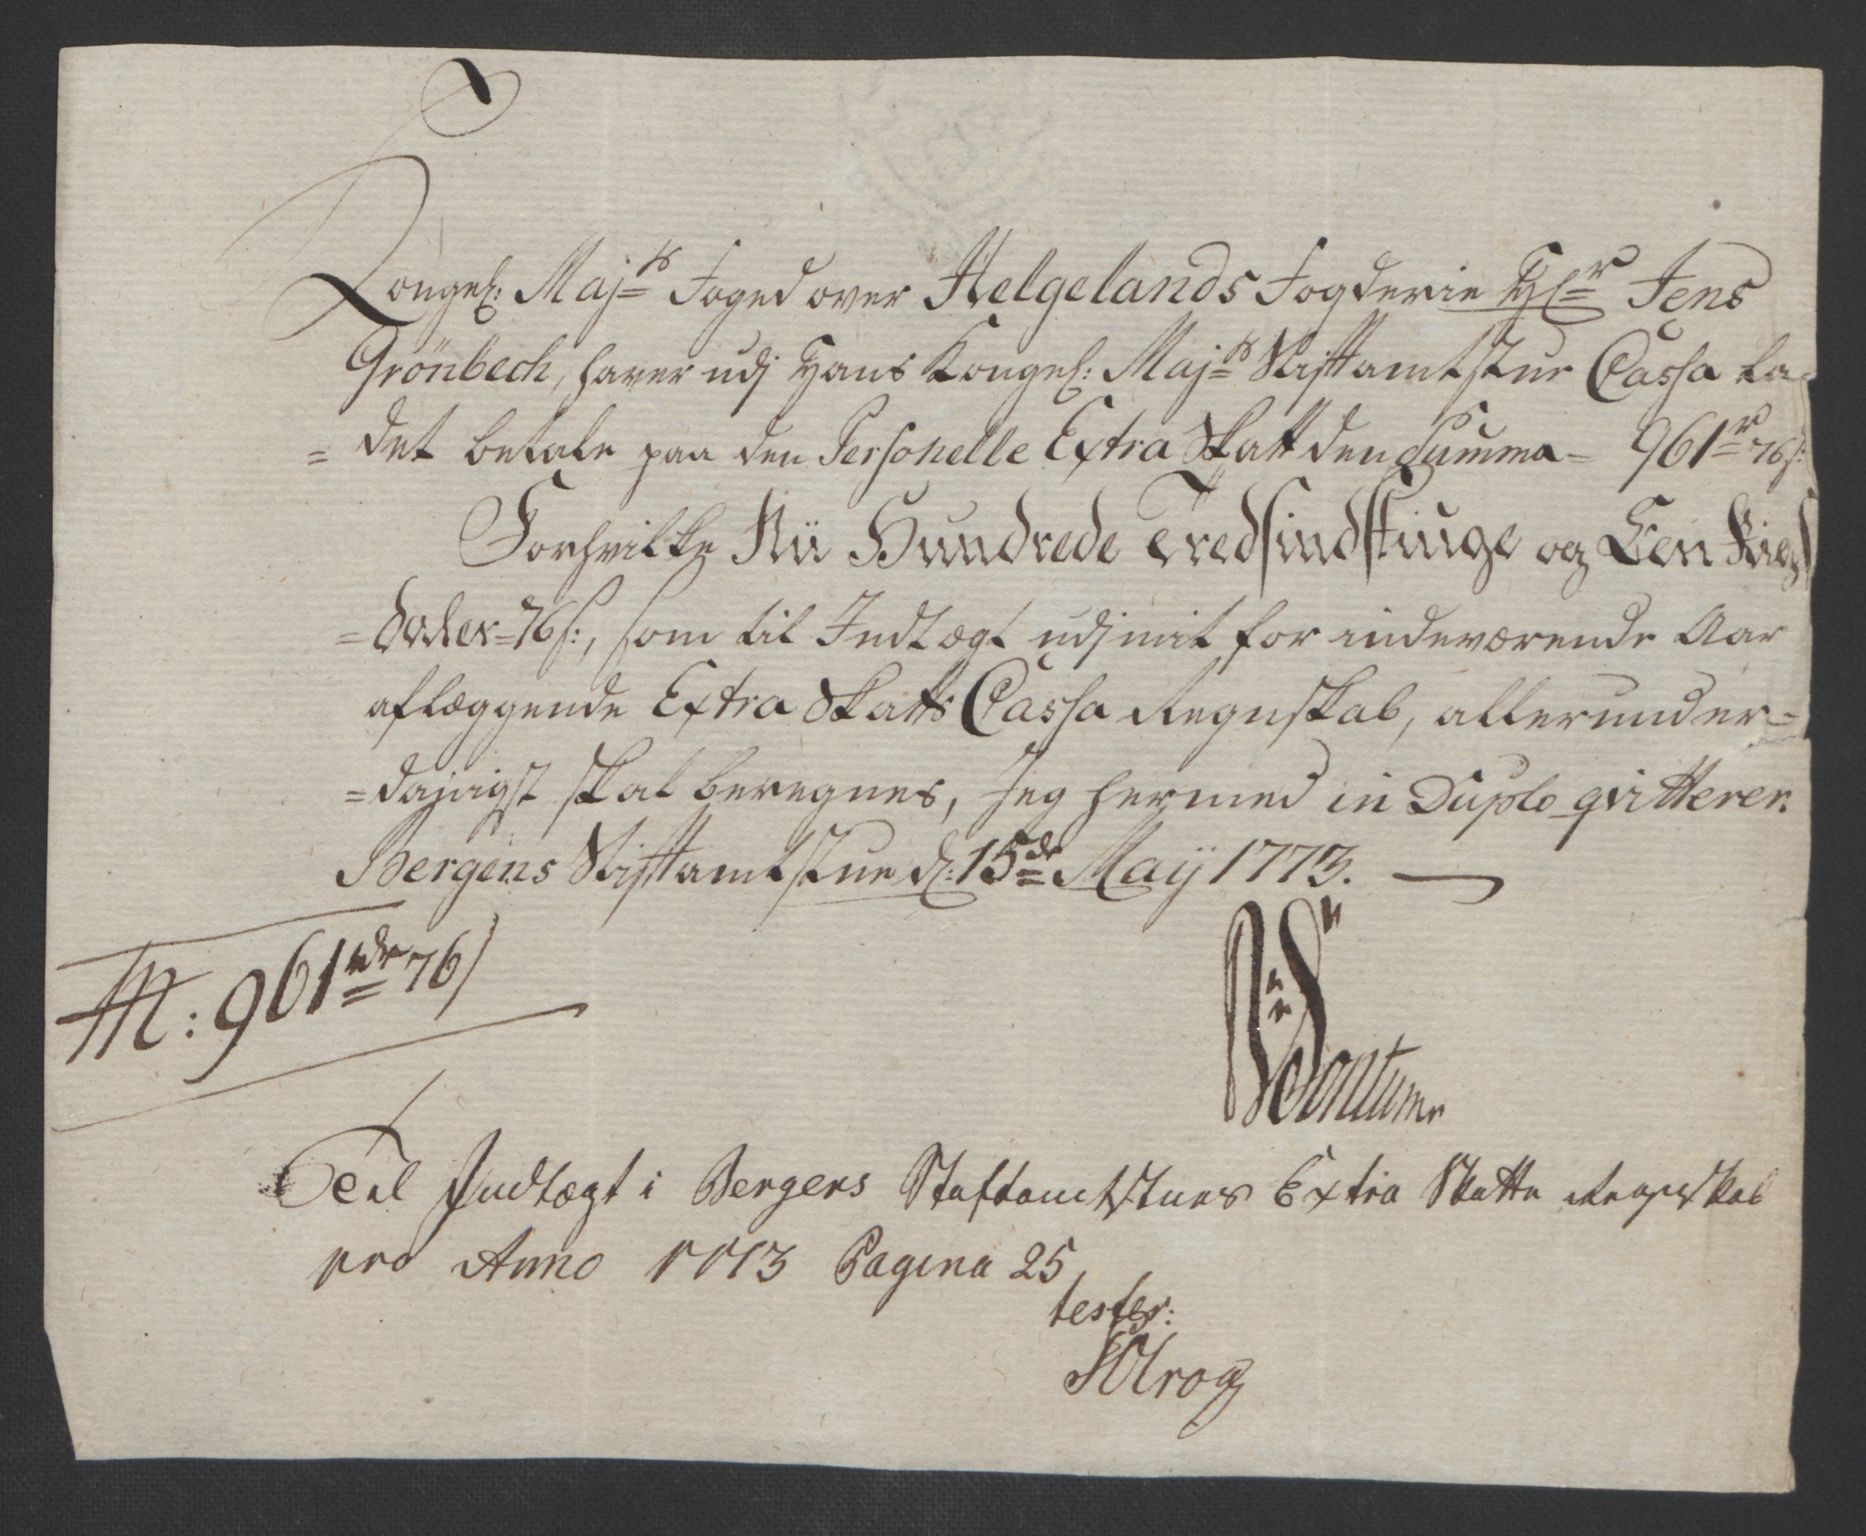 Kongel: Majts Foged over Helgelands Fogderie Hr Jens
Grönbech, haver udj Hans Kongel: Majts Stiftamtstue Cassa La-
=det betale paa den Personelle Extra Skatt den Summa = 961r 76s:
Forhvilke Nii Hundrede Tredsindstiuge og Een Rigs
=daler = 76s:, som til Indtægt udj mit for indeværende Aar
aflæggende Extra Skatts Cassa Regnskab, allerunder=
=danigst skal beregnes, Jeg hermed in Duplo qvitterer.
Bergens Stiftamtstue d: 15de Maij 1773.
961rdr 76s
Til Indtægt i Bergens Stiftamtstues Extra Skatte Regnskab
pro Anno 1773 Pagina 25
tester: